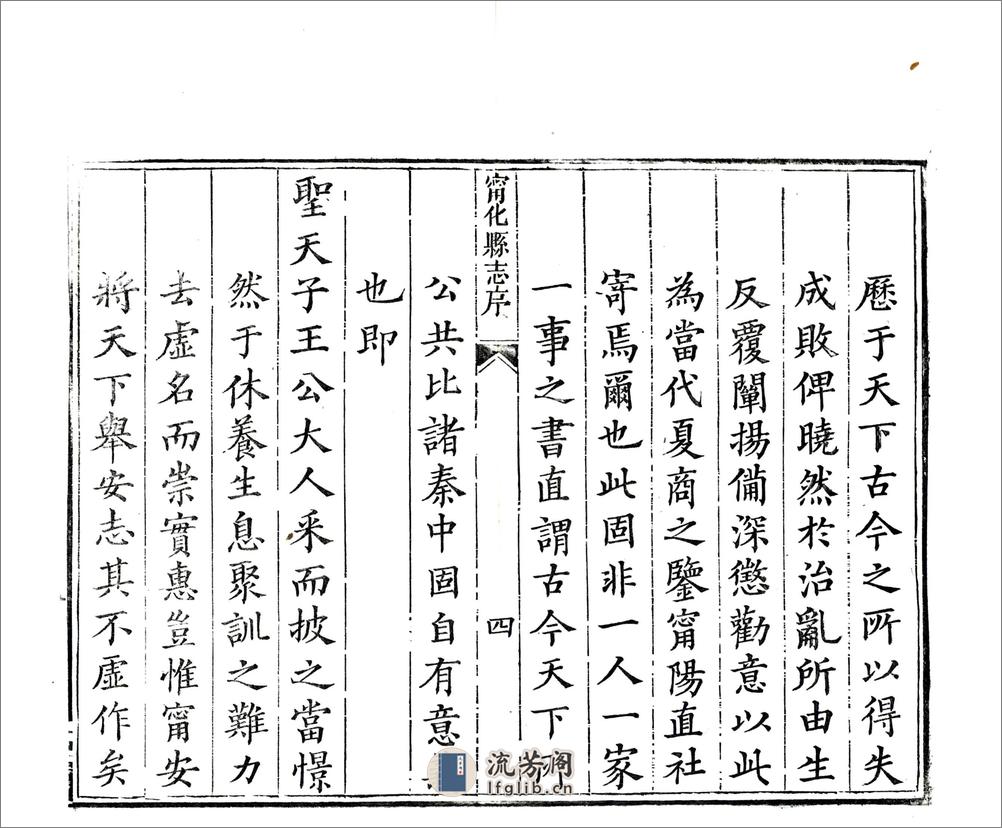 歷于天下古今之所以得失
成敗俾曉然於治亂所由生
反覆闡揚僃深懲勸意以此
為當代夏商之鑒甯陽直社
寄焉爾也此固非一人一家
一事之書直謂古今天下
甯化縣志序
四
公共比諸秦中固自有意
也即
聖天子王公大人采而披之當憬
然于休養生息聚訓之難力
去虛名而崇實惠豈惟甯安
將天下舉安志其不虛作矣
流芳阁
lfglib.cn